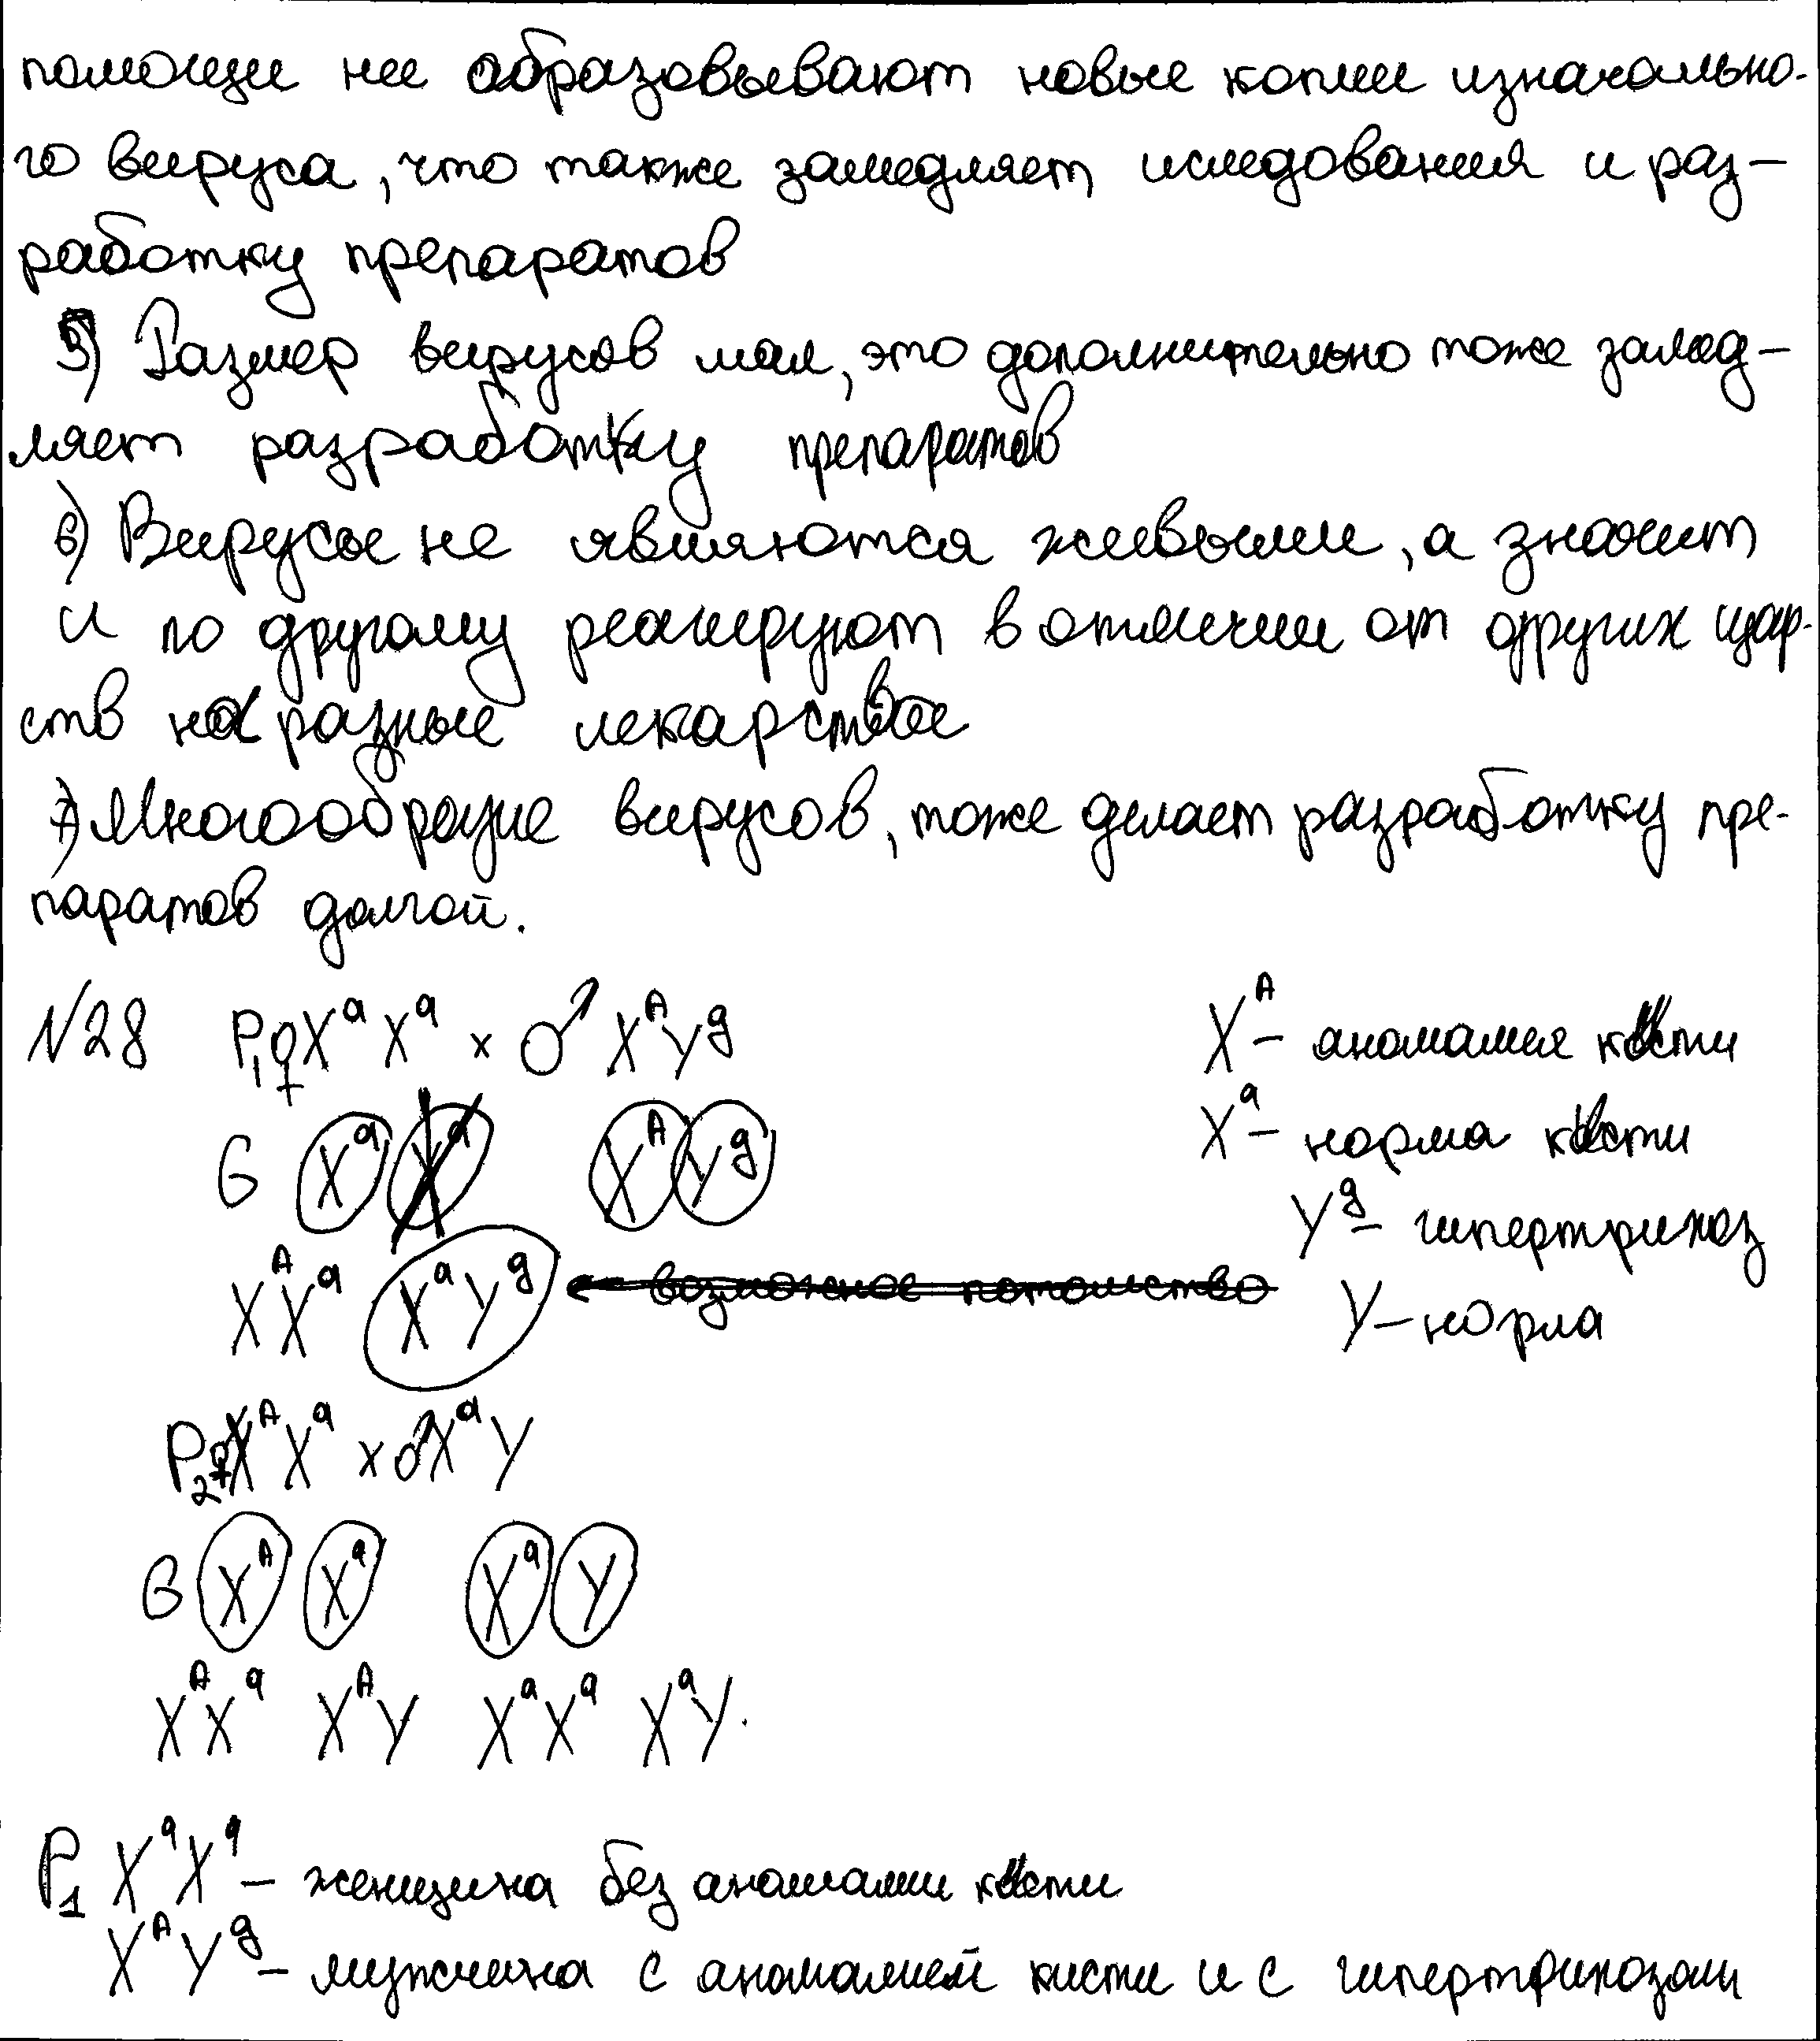 помощи нее образовывают новые копии изначально-
го вируса, что также замедляет иследования и раз-
работку препаратов
5) Размер вирусов мал, это дополнительно тоже замед-
ляет разработку препаратов
6) Вирусы не являются живыми, а значит
и по другому реагируют в отличии от других цар-
ств на разные лекарства
7) Многообразие вирусов, тоже делает разработку пре-
паратов долгой.
N28 P₁ ♀XᵃXᵃ x ♂ XᴬYᵍ
Xᴬ – аномалия кисти
Xᵃ – норма кисти
Yᵍ – гипертрихоз
Y – норма
G Xᵃ Xᵃ Xᴬ Yᵍ
XᴬXᵃ XᵃYᵍ ← возможное потомство
P₂ ♀XᴬXᵃ x ♂XᵃY
G Xᴬ Xᵃ Xᵃ Y
XᴬXᵃ XᴬY XᵃXᵃ XᵃY.
P₁ XᵃXᵃ – женщина без аномалии кисти
XᴬYᵍ – мужчина с аномалией кисти и с гипертрихозом